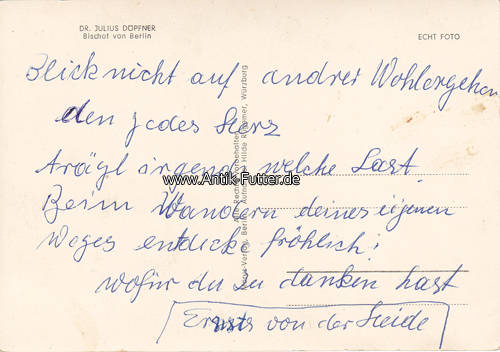 DR. JULIUS DÖPFNER
Bischof von Berlin
ECHT FOTO
Blick nicht auf andrer Wohlergehen
den jedes Herz
trägt irgend welche Last.
Beim Wandern deines eigenen
Weges entdeck fröhlich!
wofür du zu danken hast
von der Heide
www.Antik-Futter.de
Verlag, Berlin
Hilde
Würzburg